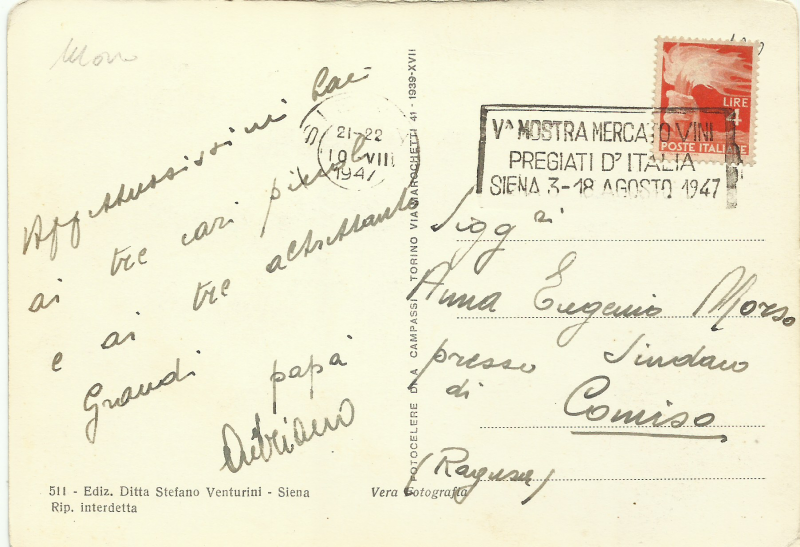 Affettuosissimi baci
ai tre cari piccoli
e ai tre altrettanto
Grandi papà
Adriano
511 - Ediz. Ditta Stefano Venturini - Siena
Rip. interdetta
Vera Fotografia
FOTOCELERE DI A. CAMPASSI TORINO VIA MAROCHETTI 41 - 1939-XVII
21-22
10 VIII
1947
Vᴬ MOSTRA MERCATO VINI
PREGIATI D'ITALIA
SIENA 3-18 AGOSTO 1947
LIRE
4
POSTE ITALIANE
Sigg ri
Anna Eugenio Morso
presso Sindaco
di
Comiso
(Ragusa)